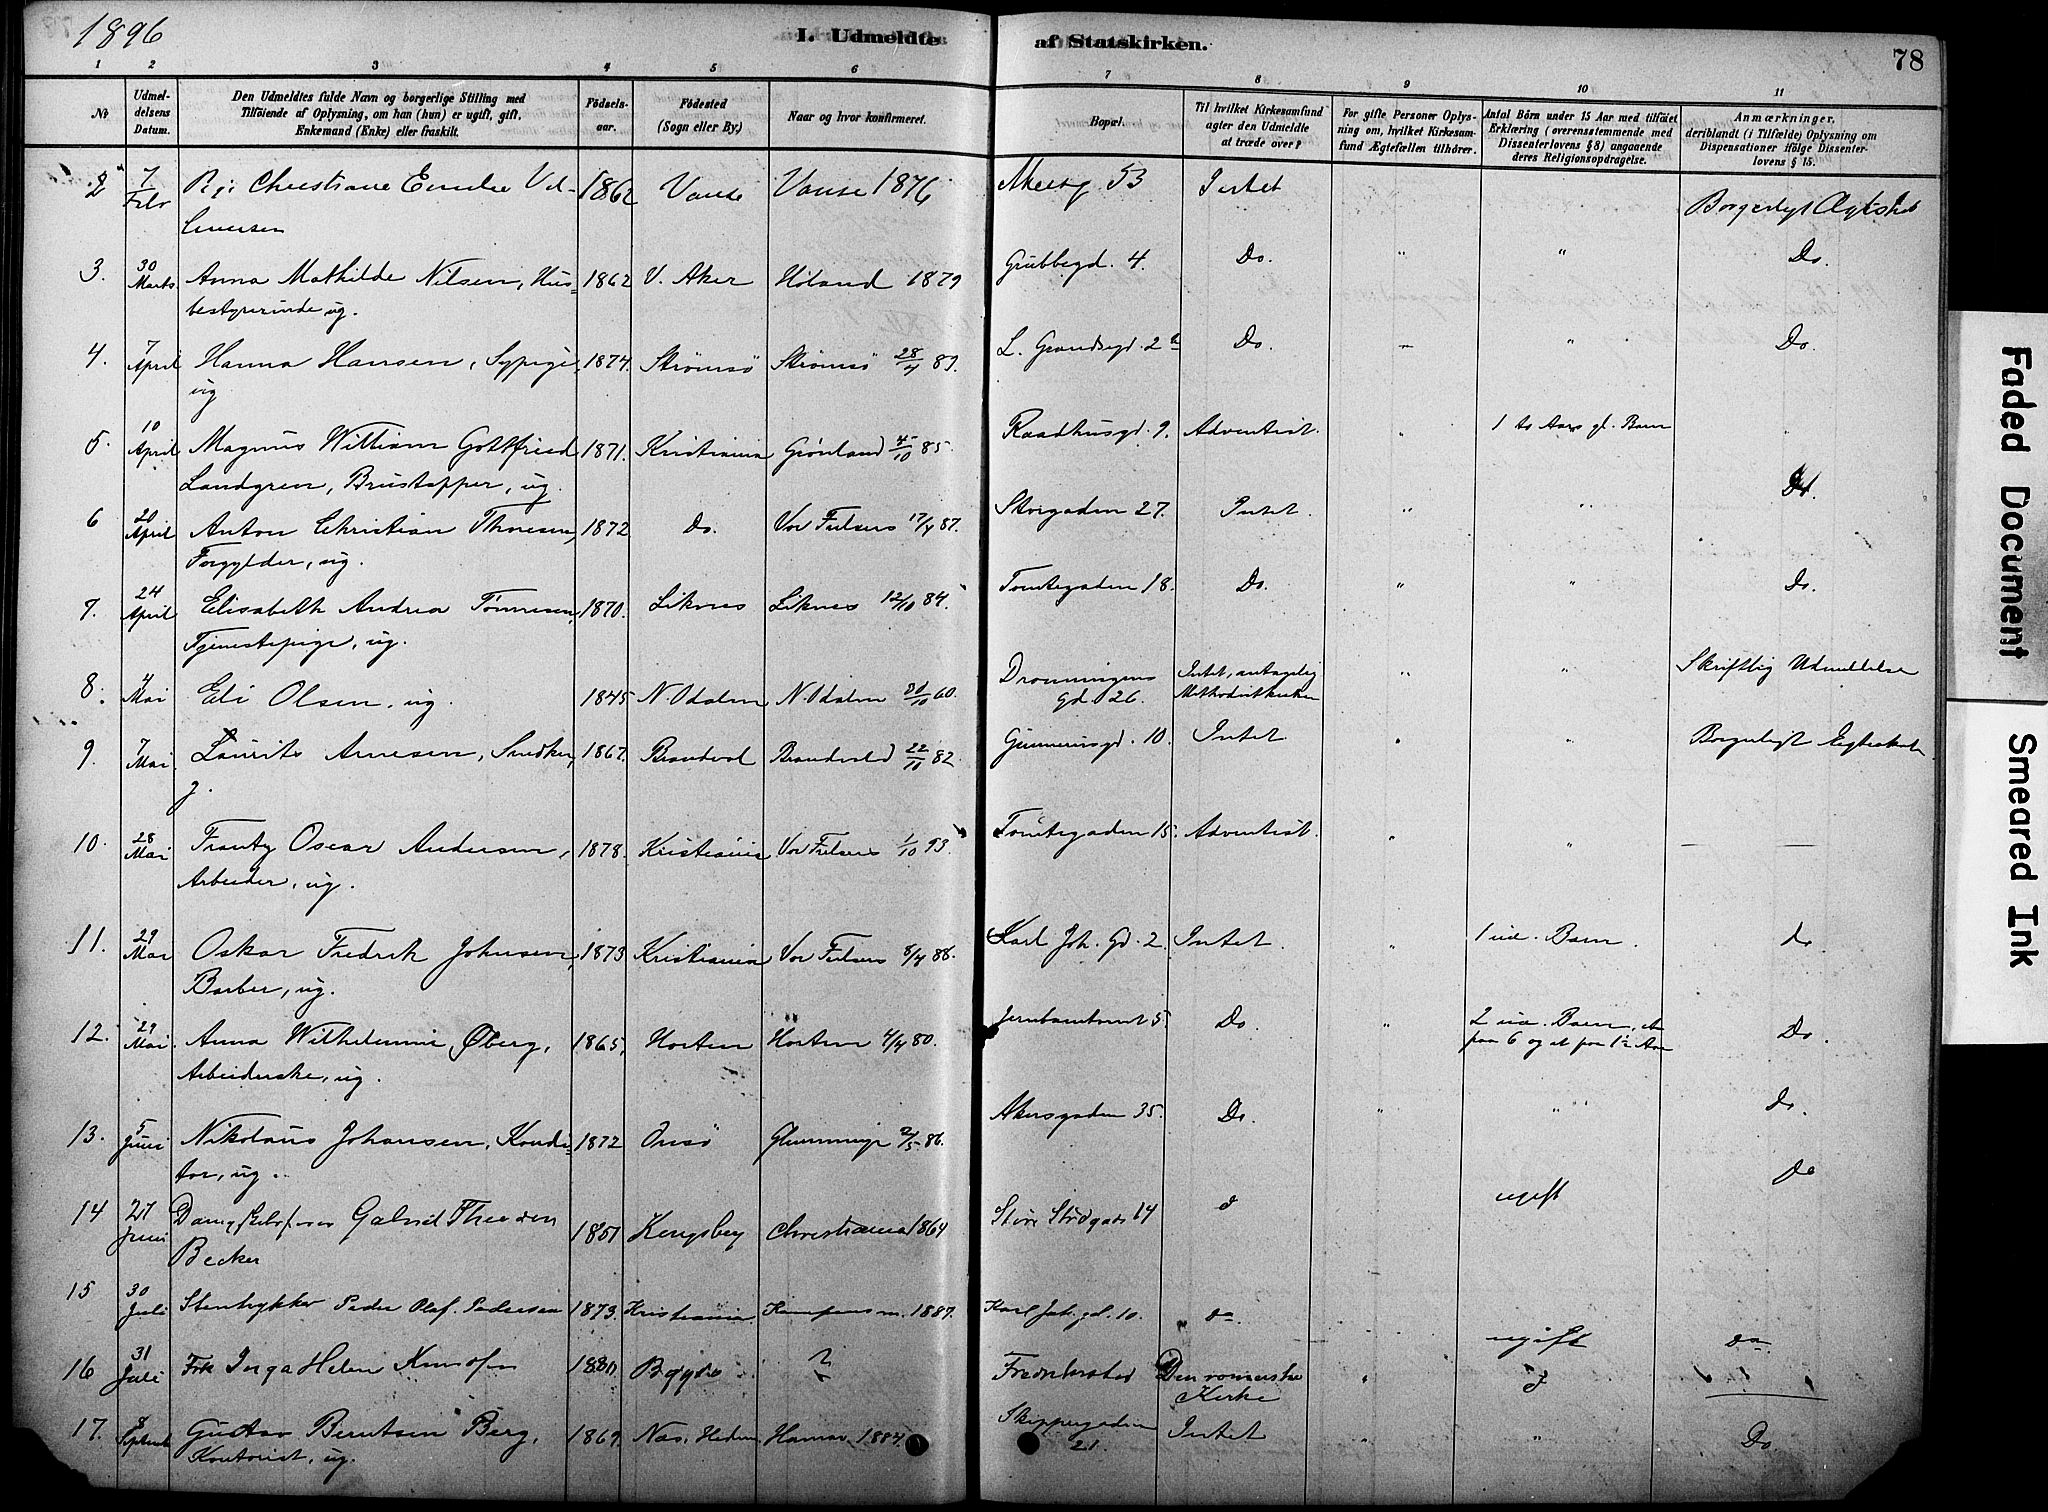 1896
I. Udmeldte af Statskirken.
78
1 2 3 4 5 6 7 8 9 10 11
Nr
Udmel-
delsens
Datum.
Den Udmeldtes fulde Navn og borgerlige Stilling med
Tilföiende af Oplysning, om han (hun) er ugift, gift,
Enkemand (Enke) eller fraskilt.
Födsels-
aar.
Födested
(Sogn eller By.)
Naar og hvor konfirmeret.
Bopæl.
Til hvilket Kirkesamfund
agter den Udmeldte
at træde over?
For gifte Personer Oplys-
ning om, hvilket Kirkesam-
fund Ægtefællen tilhörer.
Antal Börn under 15 Aar med tilföiet
Erklæring (overensstemmende med
Dissenterlovens § 8) angaaende
deres Religionsopdragelse.
Anmærkninger,
deriblandt (i Tilfælde) Oplysning om
Dispensationer ifölge Dissenter-
lovens § 15.
2 7 Febr Christiane 1862 Vanse Vanse 1876 53 Intet Borgerligt
3. 30 Marts. Anna Mathilde Nilsen, Hus- 1862 V. Aker Høland 1879 Grubbegd. 4. Do. " " Do.
bestyrerinde ug.
4. 7 April Hanna Hansen, Sypige, 1874. Strømsø Strømsø 28/4 89. L. Grændsegd. 2 Do. " Do.
ug
5. 10 April Magnus William Gottfried 1871. Kristiania Grønland 4/10 85. Raadhusgd. 9. Adventist. " 1 Aars gl. Barn "
Landgren, Brustapper, ug.
6 20 April Anton Christian Thoresen, 1872 Do. Vor Frelsers 17/4 87. Storgaden 27. Intet. " " Do.
Forgylder, ug.
7. 24 April Elisabeth Andrea Tønnesen, 1870. Liknes Liknes 12/10 84. Tomtegaden 18. Do. " " Do.
Tjenestepige, ug.
8. Mai Eli Olsen, ug. 1845 N. Odalen N. Odalen 60. Dronningens Intet, antagelig " " Skriftlig Udmeldelse
gd. 26. Methodistkirken
9. 7 Mai. Laurits Arnesen, Snedker, 1867. Brandval Brandval 22/10 82. Gunnerusgd. 10. Intet " " Borgerligt Egteskab
g.
10. 28 Mai Frantz Oscar Andersen, 1878. Kristiania Vor Frelsers 1/10 93. Tomtegaden 15. Adventist. " " —
Arbeider, ug.
11. 29 Mai Oskar Fredrik Johnsen, 1873 Kristiania Vor Frelsers 8/4 88. Karl Joh. Gd. 2. Intet. " 1 ue. Barn. do
Barber, ug.
12. 29 Mai. Anna Wilhelmine Øberg, 1865. Horten Horten 4/4 80. Jernbanetorvet 5. Do. " 2 ue. Børn, et Do.
Arbeiderske, ug. paa 6 og et paa 1½ Aar
13. 5 Juni Nikolaus Johansen, Kondi- 1872 Onsø Glemminge 2/5 86. Akersgaden 35. Do. " " do.
tor, ug.
14 27 Juni Gabriel 1851 Kongsberg Christiania 1864 Store 14 d ugift Do
Becker
15 30 Juli Stentrykker Peder Olaf Pedersen 1873. Kristiania Kampens m. 1887. Karl Joh. gd. 10. do. ugift do
16 31 Juli Frk Inga Helene 1880 Bygdø ? Fredrikstad Den romerske " d —
Kirke
17. 8 Septemb Gustav Berntsen Berg, 1869. Næs, Hedm. Hamar 1884. Skippergaden Intet " Do.
Kontorist, ug. 21.
Faded Document
Smeared Ink